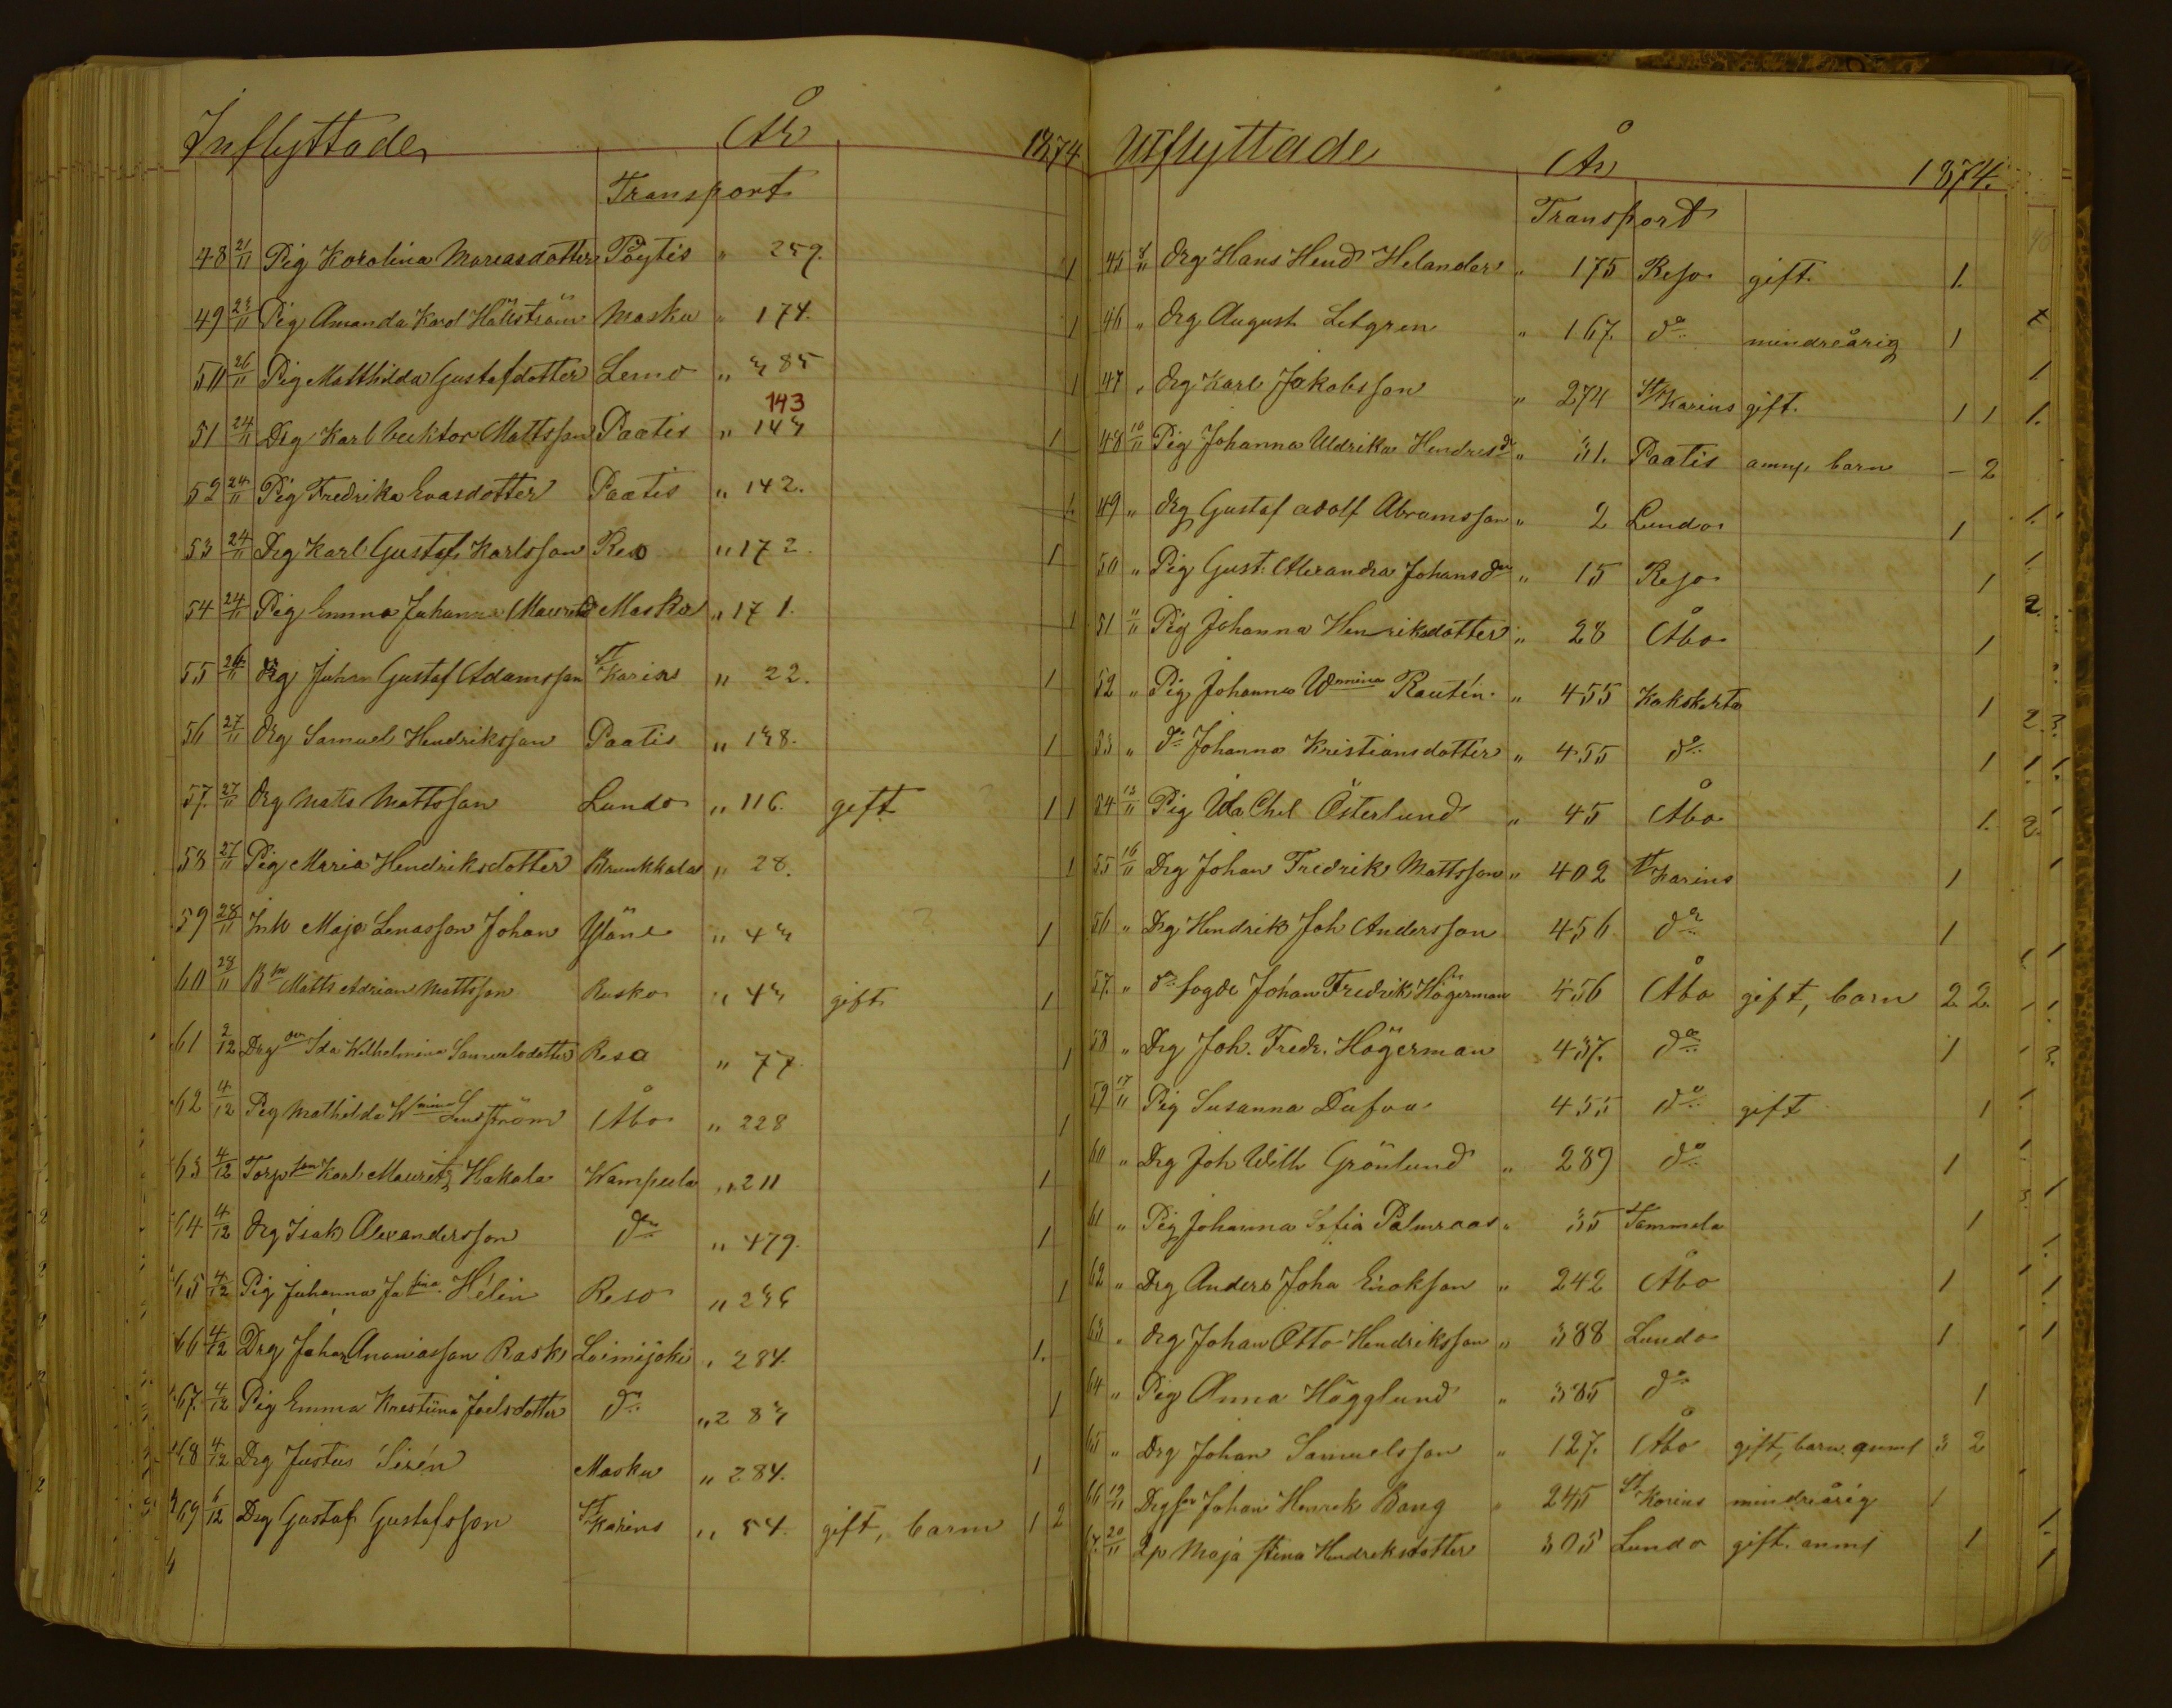 Inflyttade År 1874
Transport
48 21/11 Pig Karolina Mariasdotter Pöytis " 259. 1
49 23/11 Pig Amanda Karol Hällström Masku " 174. 1
50 26/11 Pig Matthilda Gustafsdotter Lemo " 385 1
143
51 24/11 Drg Karl Vicktor Mattsson Paatis " 143 1
52 24/11 Pig Fredrika Evasdotter Paatis " 142. 1
53 24/11 Drg Karl Gustaf Karlsson Reso " 172. 1
54 24/11 Pig Emma Johanna Maurits Masku " 171. 1
55 26/11 Drg Johan Gustaf Adamsson St Karins " 22. 1
56 27/11 Drg Samuel Hendriksson Paatis " 138. 1
57. 27/11 Drg Matts Mattsson Lundo " 116. gift 1 1
58 27/11 Pig Maria Hendriksdotter Brunkkala " 28. 1
59 28/11 Inh Maja Lenasson Johan Yläne " 43 1
60 28/11 Bsn Matts Adrian Mattsson Rusko " 43 gift 1
61 2/12 Drg Ida Wilhelmina Samuelsdotter Reso " 77. 1
62 4/12 Pig Mathilda Wmina Lindström Åbo " 228 1
63 4/12 Torpson Karl Mauritz Hakala Wampula " 211 1
64 4/12 Drg Isak Alexandersson do " 479. 1
65 4/12 Pig Johanna Josina Helin Reso " 236 1
66 4/12 Drg Johan Ananiasson Rask Loimijoki " 284. 1.
67. 4/12 Pig Emma Kristina Joelsdotter do " 283 1
68 4/12 Drg Justus Sirén Masku " 284. 1
69 6/12 Drg Gustaf Gustafsson St Karins " 54. gift, barn 1 2
Utflyttade År 1874.
Transport
45 Drg Hans Hend Helander " 175 Reso gift. 1.
46 " Drg August Letgren " 167. do mindreårig 1
47 " Drg Karl Jakobsson " 274 St Karins gift. 1 1
48 10/11 Pig Johanna Uldrika Hendrisdr " 31. Paatis anmg. barn – 2
49 " Drg Gustaf Adolf Abramsson " 2 Lundo 1
50 " Pig Gust. Alexandra Johansdr " 15 Reso 1
51 11/11 Pig Johanna Henriksdotter " 28 Åbo 1
52 " Pig Johanna Wmina Rautén " 455 Kakskerta 1
53 " do Johanna Kristiansdotter " 455 do 1
54 12/11 Pig Ida Chel Österlund " 45 Åbo 1.
55 16/11 Drg Johan Fredrik Mattsson " 402 St Karins 1
56 " Drg Hendrik Joh Andersson 456 do 1
57. " fogde Johan Fredrik Högerman 456 Åbo gift, barn 2 2
58 " Drg Joh. Fredr. Högerman 437. do 1
59 17/11 Pig Susanna Dufva 455 do gift 1
60 " Drg Joh Wilh Grönlund " 289 do 1
61 " Pig Johanna Sofia Palmroos " 35 Tammela 1
62 " Drg Anders Joha Erikson " 242 Åbo 1
63 " Drg Johan Otto Hendriksson " 388 Lundo 1
64 " Pig Anna Högglund " 385 do 1
65 " Drg Johan Samuelsson " 127. Åbo gift, barn. anms 3 2
66 19/11 Drgsn Johan Henrik Bang " 245 St Karins mindreårig 1
67. 20/11 Maja Stina Hendriksdotter 305 Lundo gift. anms 1